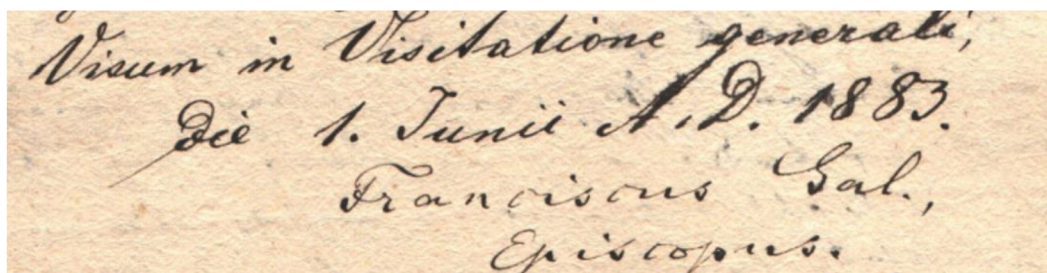 Visum in Visitatione generali,
Die 1. Junii A. D. 1883.
Franciscus Gal.,
Episcopus.